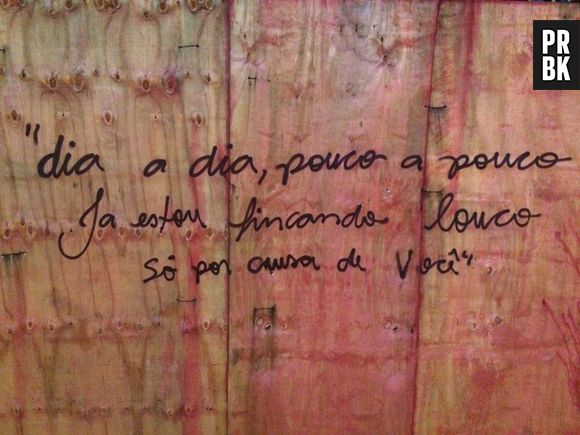 PR
BK
"dia a dia, pouco a pouco
Ja estou fincando louco
Só por causa de Você"